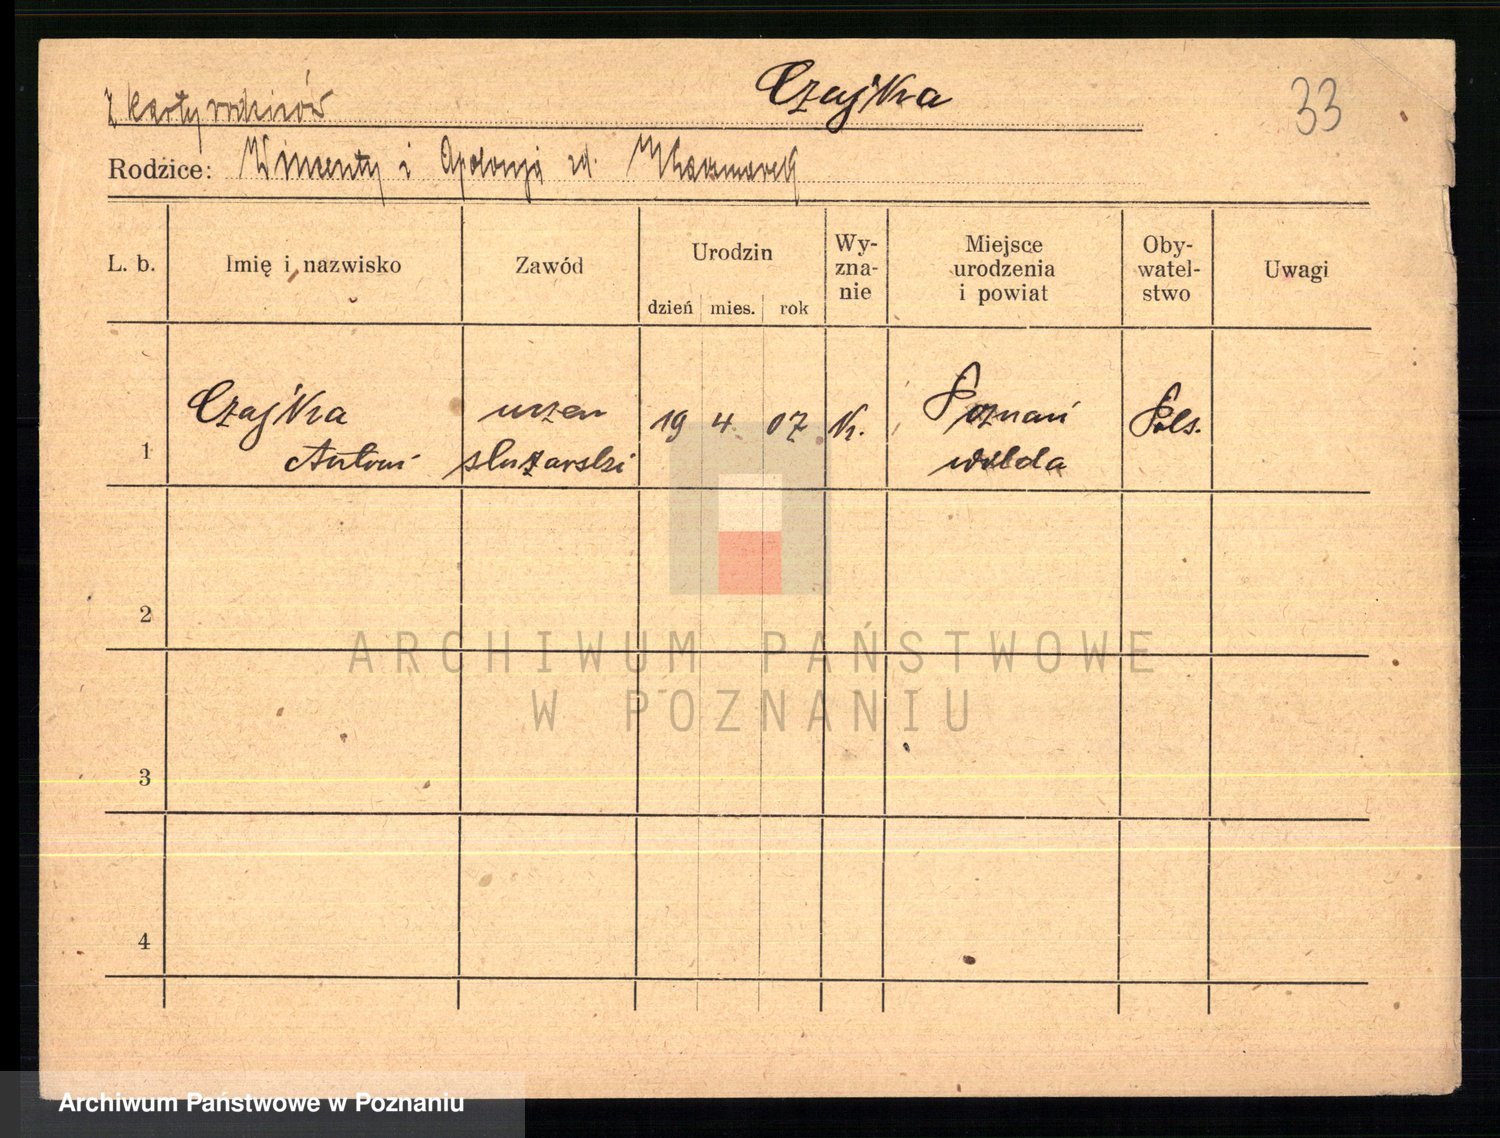 Czajka
33
z karty rodziców
Rodzice: Wincenty i Apolonja zd. Kaczmarek
L. b.
Imię i nazwisko
Zawód
Urodzin
dzień mies. rok
Wy-
zna-
nie
Miejsce
urodzenia
i powiat
Oby-
watel-
stwo
Uwagi
1
Czajka
Antoni
uczeń
ślusarski
19 4. 07
k.
Poznań
Wilda
Pols.
2
3
4
ARCHIWUM PAŃSTWOWE
W POZNANIU
Archiwum Państwowe w Poznaniu